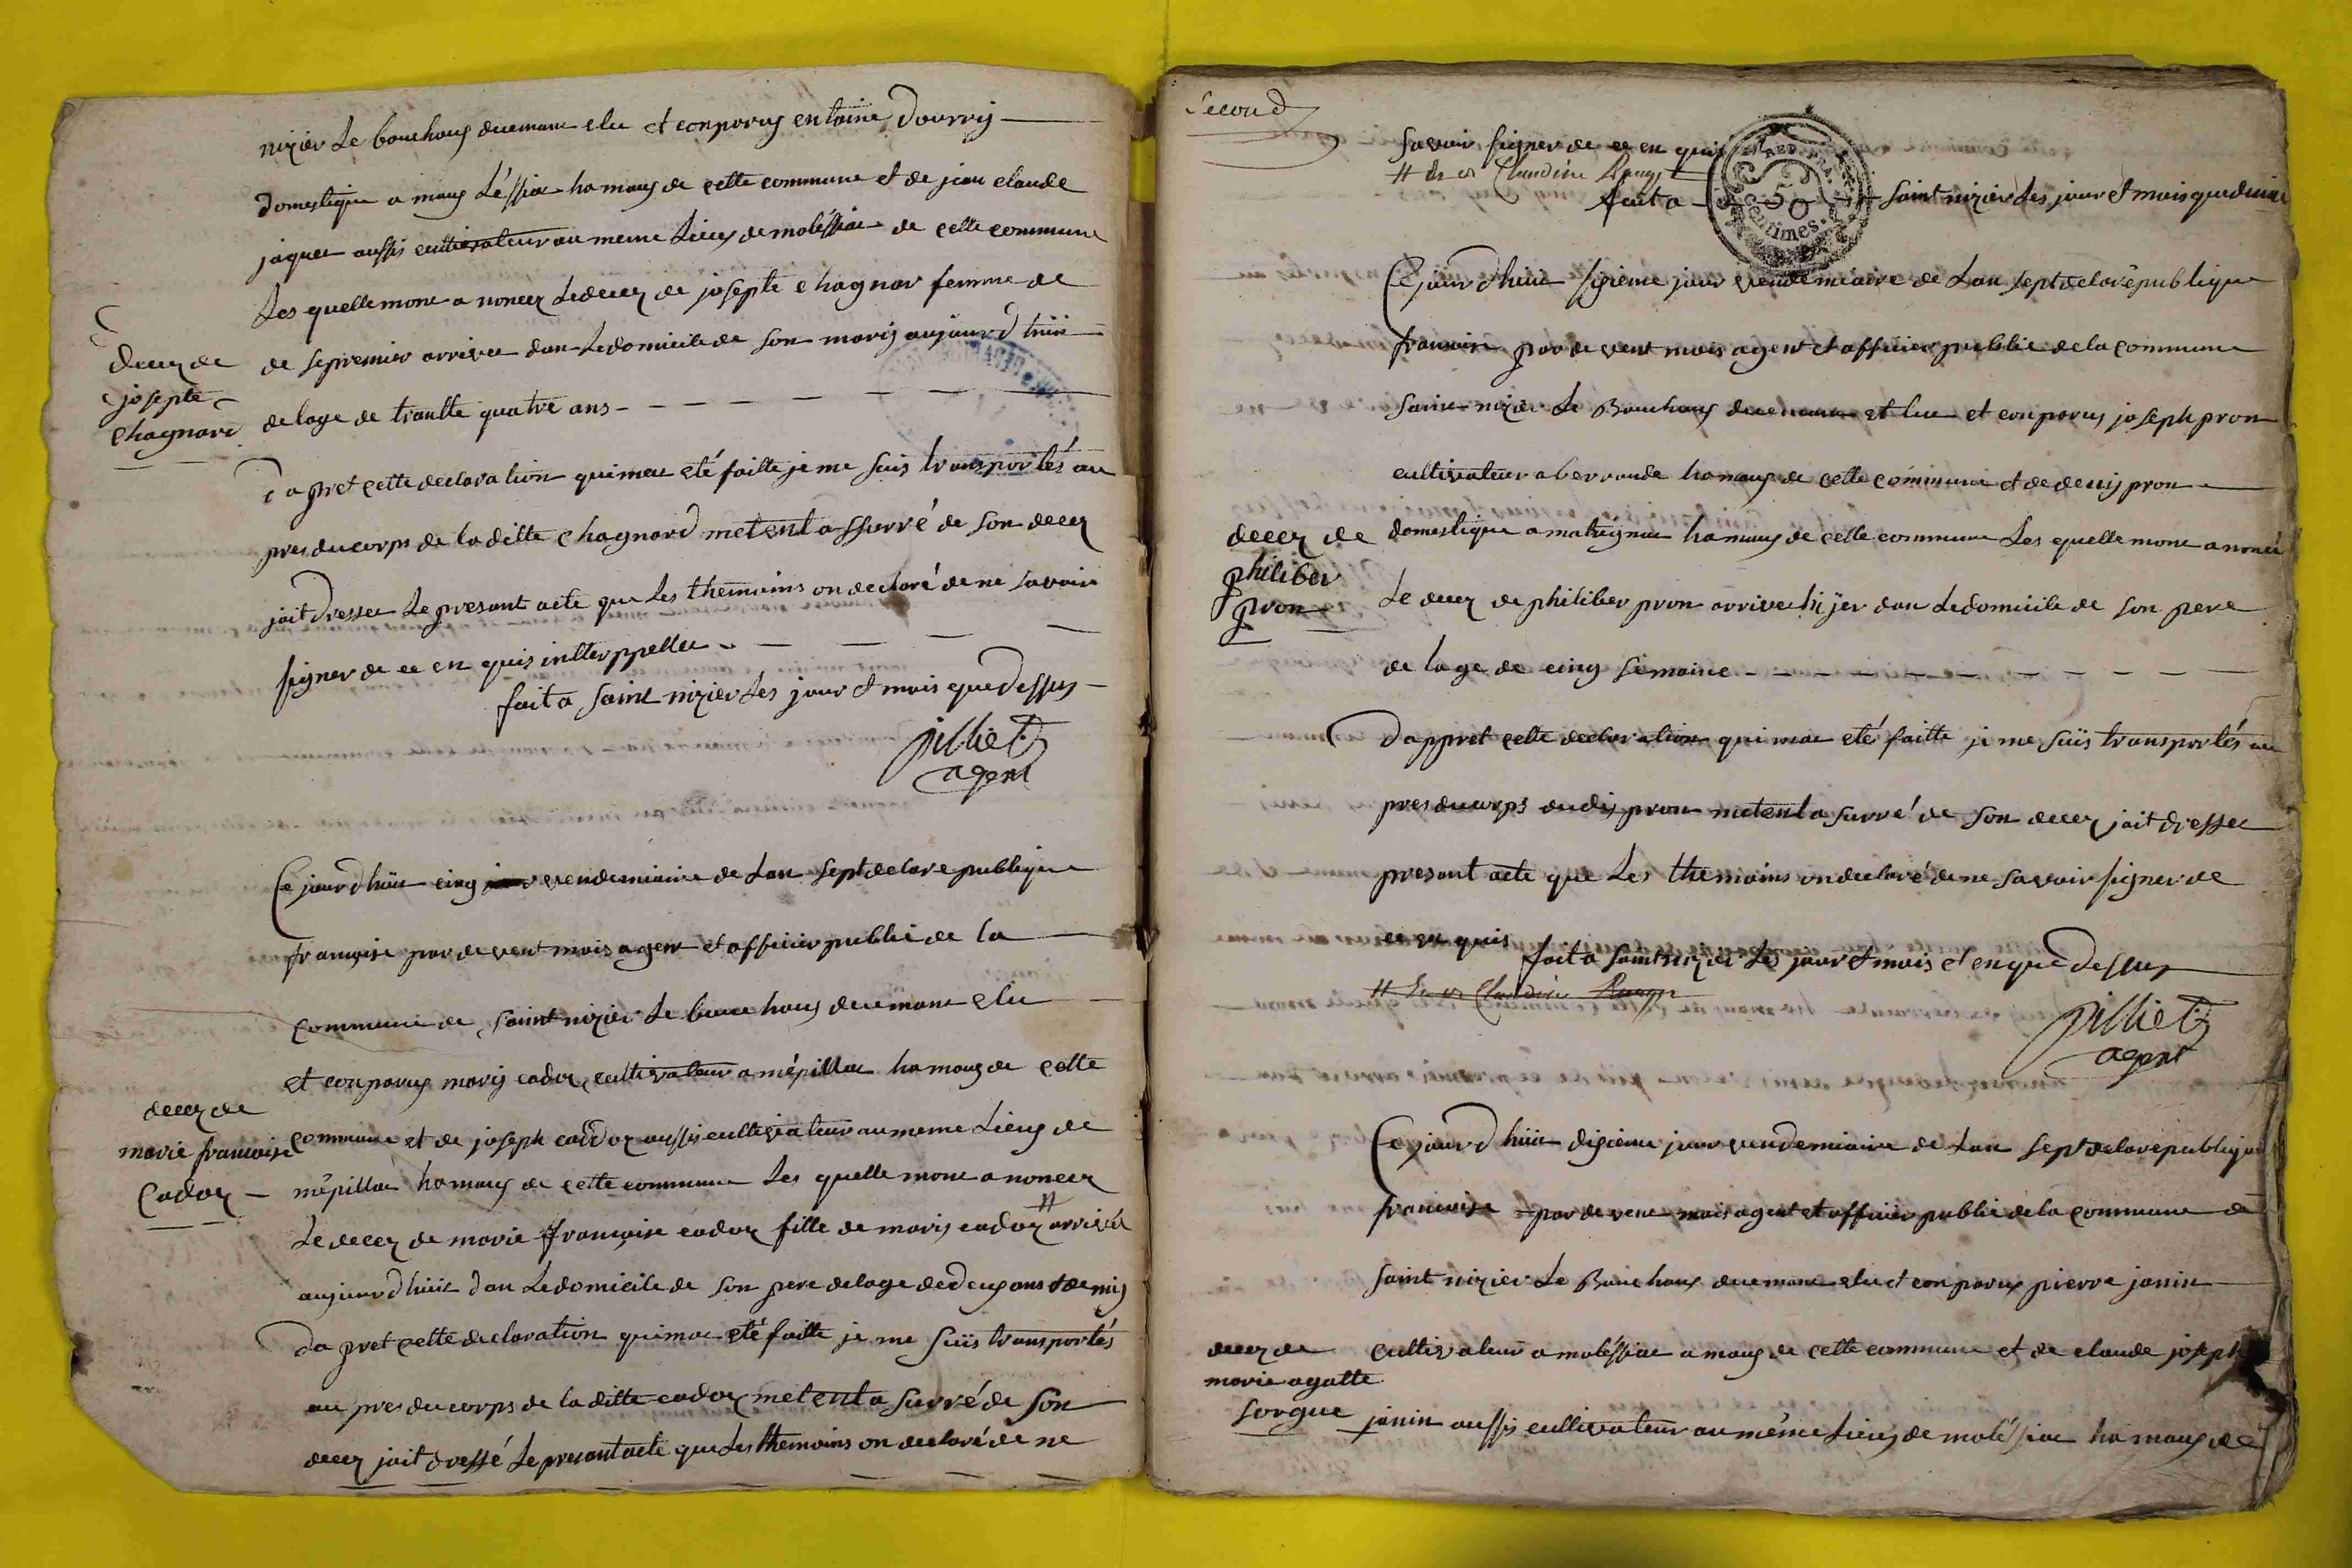 nizier Le bouchous duemane elu et conparus entoine Dourrij
Domestique a mong Léssiae hamaus de cette commune et de jean claude
jaques aussis cultivateur au meme Lieus de moléssiae de cette commune
Les quelle mone a noncez Ledecez de josepte chagnar femme de
de sepremier arrivee dan Ledomicile de son marij aujourd huis
decez de
josepte
Chagnard
de lage de trantte quatre ans
Dapret cette declaration quimae eté faitte je me suis transportés au
pres du corps de laditte chagnard metent assurré de son decez
jait dressee Le presant acte que Les themoins on declaré de ne savoir
signer de ce en quis intterppellee
fait a Saint nizier Les jour et mois que dessus
jilliet
agent
Ce jourd huis cinq vendemiaire de Lan sept de la republique
françoise par de vent mois agent et officier public de la
commune de saint nizier Le bouchous duemane elu
et conparus marij cadoz cultivateur a mépillae hamaus de cette
decez de
marie francoise
Cadoz
commune et de joseph cadoz aussis cultivateur au meme Lieus de
mépillae hamaus de cette commune Les quelle mone a noncez
Le decez de marie françoise cadoz fille de marij cadoz # arrivée
aujourd huis dan Ledomicile de son pere de lage de deus ans et demij
Dapret cette declaration quimae eté faitte je me suis transportés
au pres du corps de laditte cadoz metent a surré de son
decez jait dressé Le presant acte que Les themoins on declaré de ne
Second
savoir signer de ce en quis
# de Claudine Rougt
fait a saint nizier Les jour et mois que dessus
50 centimes
Ce jourd huis sizieme jour vendemiaire de Lan sept de la republique
francoise par de vent mois agent et officier public de la commune
Saint nizier Le Bouchous duemane et lue et conparus joseph pron
cultivateur a berrande hamaus de cette commune et de denij pron
decez de
philiber
pron
domestique a matrégnae hamaus de cette commune Les quelle mone a noncé
Le decez de philiber pron arrivee hijer dan Ledomicile de son pere
de lage de cinq semaine
Dappret cette declaration qui mae eté faitte je me suis transportés au
pres du corps dudis pron metent a surré de son decez jait dressee
presant acte que Les themoins on declaré de ne savoir signer de
ce en quis
fait a saint nizier Les jour et mois et en que dessus
# de Claudine Rougt
jilliet
agent
Ce jourd huis dizieme jour vendemiaire de Lan sept de la republique
francoise par de vene mois agent et officier public de la commune de
saint nizier Le Bouchous duemane elu et conparus pierre janin
decez de
marie agatte
sorgue
cultivateur a moléssiae amaus de cette commune et de claude joseph
janin aussis cultivateur au méme Lieus de moléssiae hamaus de